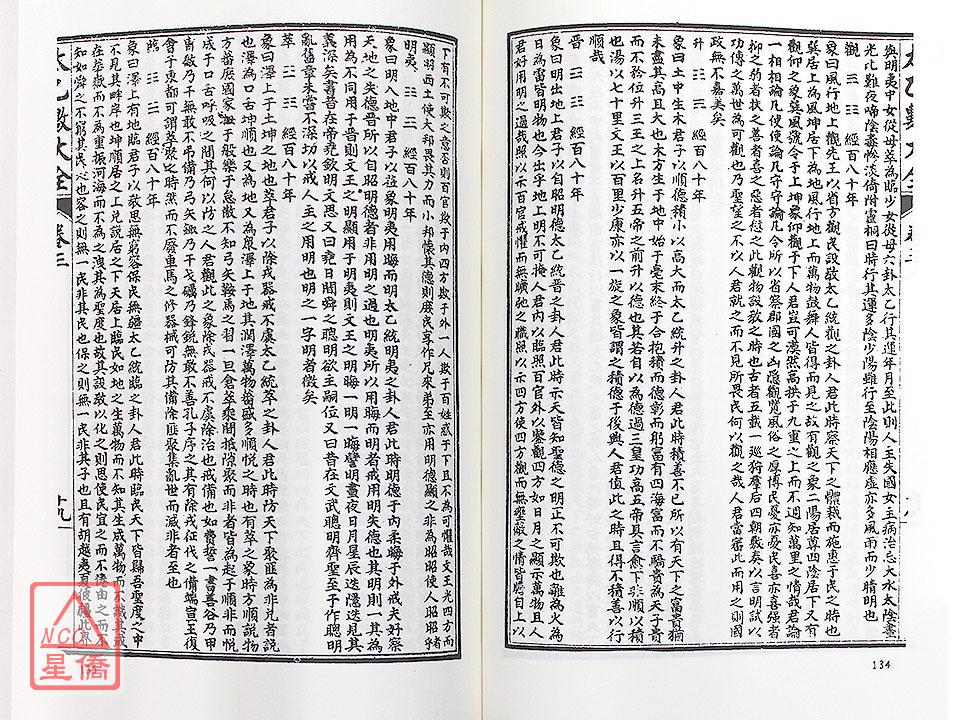 與朗夷中女從母萃為臨少女從母六卦太乙行其運年月至此則人主失國女主病治忘大水太陰晝
光此比難夜啼陰盡慘淡倚附靈祠曰時行其運多陰少陽雖行至陰陽相應虛亦多風雨而少晴明也
觀 經百八十年
象曰風行地上觀先王以省方觀民設教太乙統觀之卦人君此時察天下之體觀而施惠于民之時也
巽居上為風坤居下為地風行地上而萬物鼓舞人皆得而見之故有觀之象二陽居尊四陰居下又有
觀仰之象巽風號令于上坤眾仰觀于下人君豈可漠然高拱于九重之上而不週知萬里之情哉君論
一相相論凡使使論凡守守論凡令所以省察郡國之山隱觀覽風俗之厚博民憂亦憂民喜亦喜強者
抑之弱者扶之善者喜之惡者怒之此觀物設教之時也古者五載一巡狩羣后四朝敷奏以言明試以
功傳之萬世為可觀也乃聖望之不以人君就之而不見所畏民何以觀之哉人君當審此而用之則國
政無不嘉美矣
升 經百八十年
象曰土中生木君子以順德積小以高大而太乙統升之卦人君此時積善不已所以有天下之富貴猶
未盡其高且大也木方生于地中始于毫末終于合抱積而德彰而躬富有四海富而不驕貴為天子貴
而不矜位升三王之上名升五帝之前升以德也其若自以為德過三皇功高五帝具言愈下非順以積
也湯以七十里文王以百里少康亦以一旅之象皆謂之積德于後與人君值此之時且得不積善以行
順哉
晉 經百八十年
象曰明出地上君子以自昭明德太乙統晉之卦人君此時示天皆知聖德之明正不可欺也離為火為
日為雷皆明物也今出乎地上明不可掩人君內以臨照百官外以鑒觀四方如日月之顯示萬物且人
君好用明之過哉照以示百官戒懼而無曠弛之職照以示四方使四方觀而無壅蔽之情此德自上以
134
太乙數大全 卷三
下有不可欺之意否則百官欺于內四方欺于外一人欺于百姓惑于下且不為可懼哉文王光四方而
顯羽西土使大邦畏其力而小邦懷其德則庶民享作兄來弟亦用明德顯之非為昭昭使人昭昭者
明夷 經百八十年
象曰明入地中君子以蒞象明夷用晦而明太乙統明夷之卦人君此時明德于內柔晦于外戒夫好察
天地之失德晉所以自昭明德者非用明之過也明夷所以用晦而明者戒用明失德也其明則一其為
用為不同用于晉則文王之明顯用于明夷則文王之明晦一明一晦譬明晝夜日月星辰迭隱迭見其
義深矣書昔在帝堯敘明文思又曰堯日聞舜之聰明欲主嗣位又曰昔在文武聰明齊聖至于作聰明
亂舊章未嘗不深切以戒人主之用明也明之一字明者微矣
萃 經百八十年
象曰澤上于土坤之地也萃君子以除戎器戒不虞太乙統萃之卦人君此時防天下聚匪為非兌者說
也澤為口舌坤順也又為地又為眾澤上于地其潤澤萬物蕃盛多順悅之時也有萃之象時方順說物
方蕃庶國家于般樂于怠傲不知弓矢鞍馬之習一旦倉萃爕間抵隙聚而非者皆為起于順非而悅
成于口舌呼吸之間其何以防之人君觀此之象除戎器戒不虞除治也戒備也如費誓一書善谷乃甲
胄敽乃干無敢不弔備乃弓矢鍛乃戈礪乃鋒銳無敢不善孔子序之其有除戎征伐之備端宣王復
會于東都可謂萃聚之時然而不廢車馬之修器械可防其備除匪聚集亂世而滅非者至也
臨 經百八十年
象曰澤上有地臨君子以教思無窮容保民無疆太乙統臨之卦人君此時臨民天下皆歸吾聖度之中
不見其畔岸也坤順居之上兌說居之下天居上臨民如地之生萬物而不知其生成萬物而不識其戒
在華嶽而不為重振河海而不為之洩其為聖度也故其設教以化之則思使民宜之而不倦由之而不
知如舜之不窮其民也容之則無一民非其民也保之則無一民非其子也且有胡越夷夏彼疆此界
太乙數大全 卷三
十九
NCC
星僑